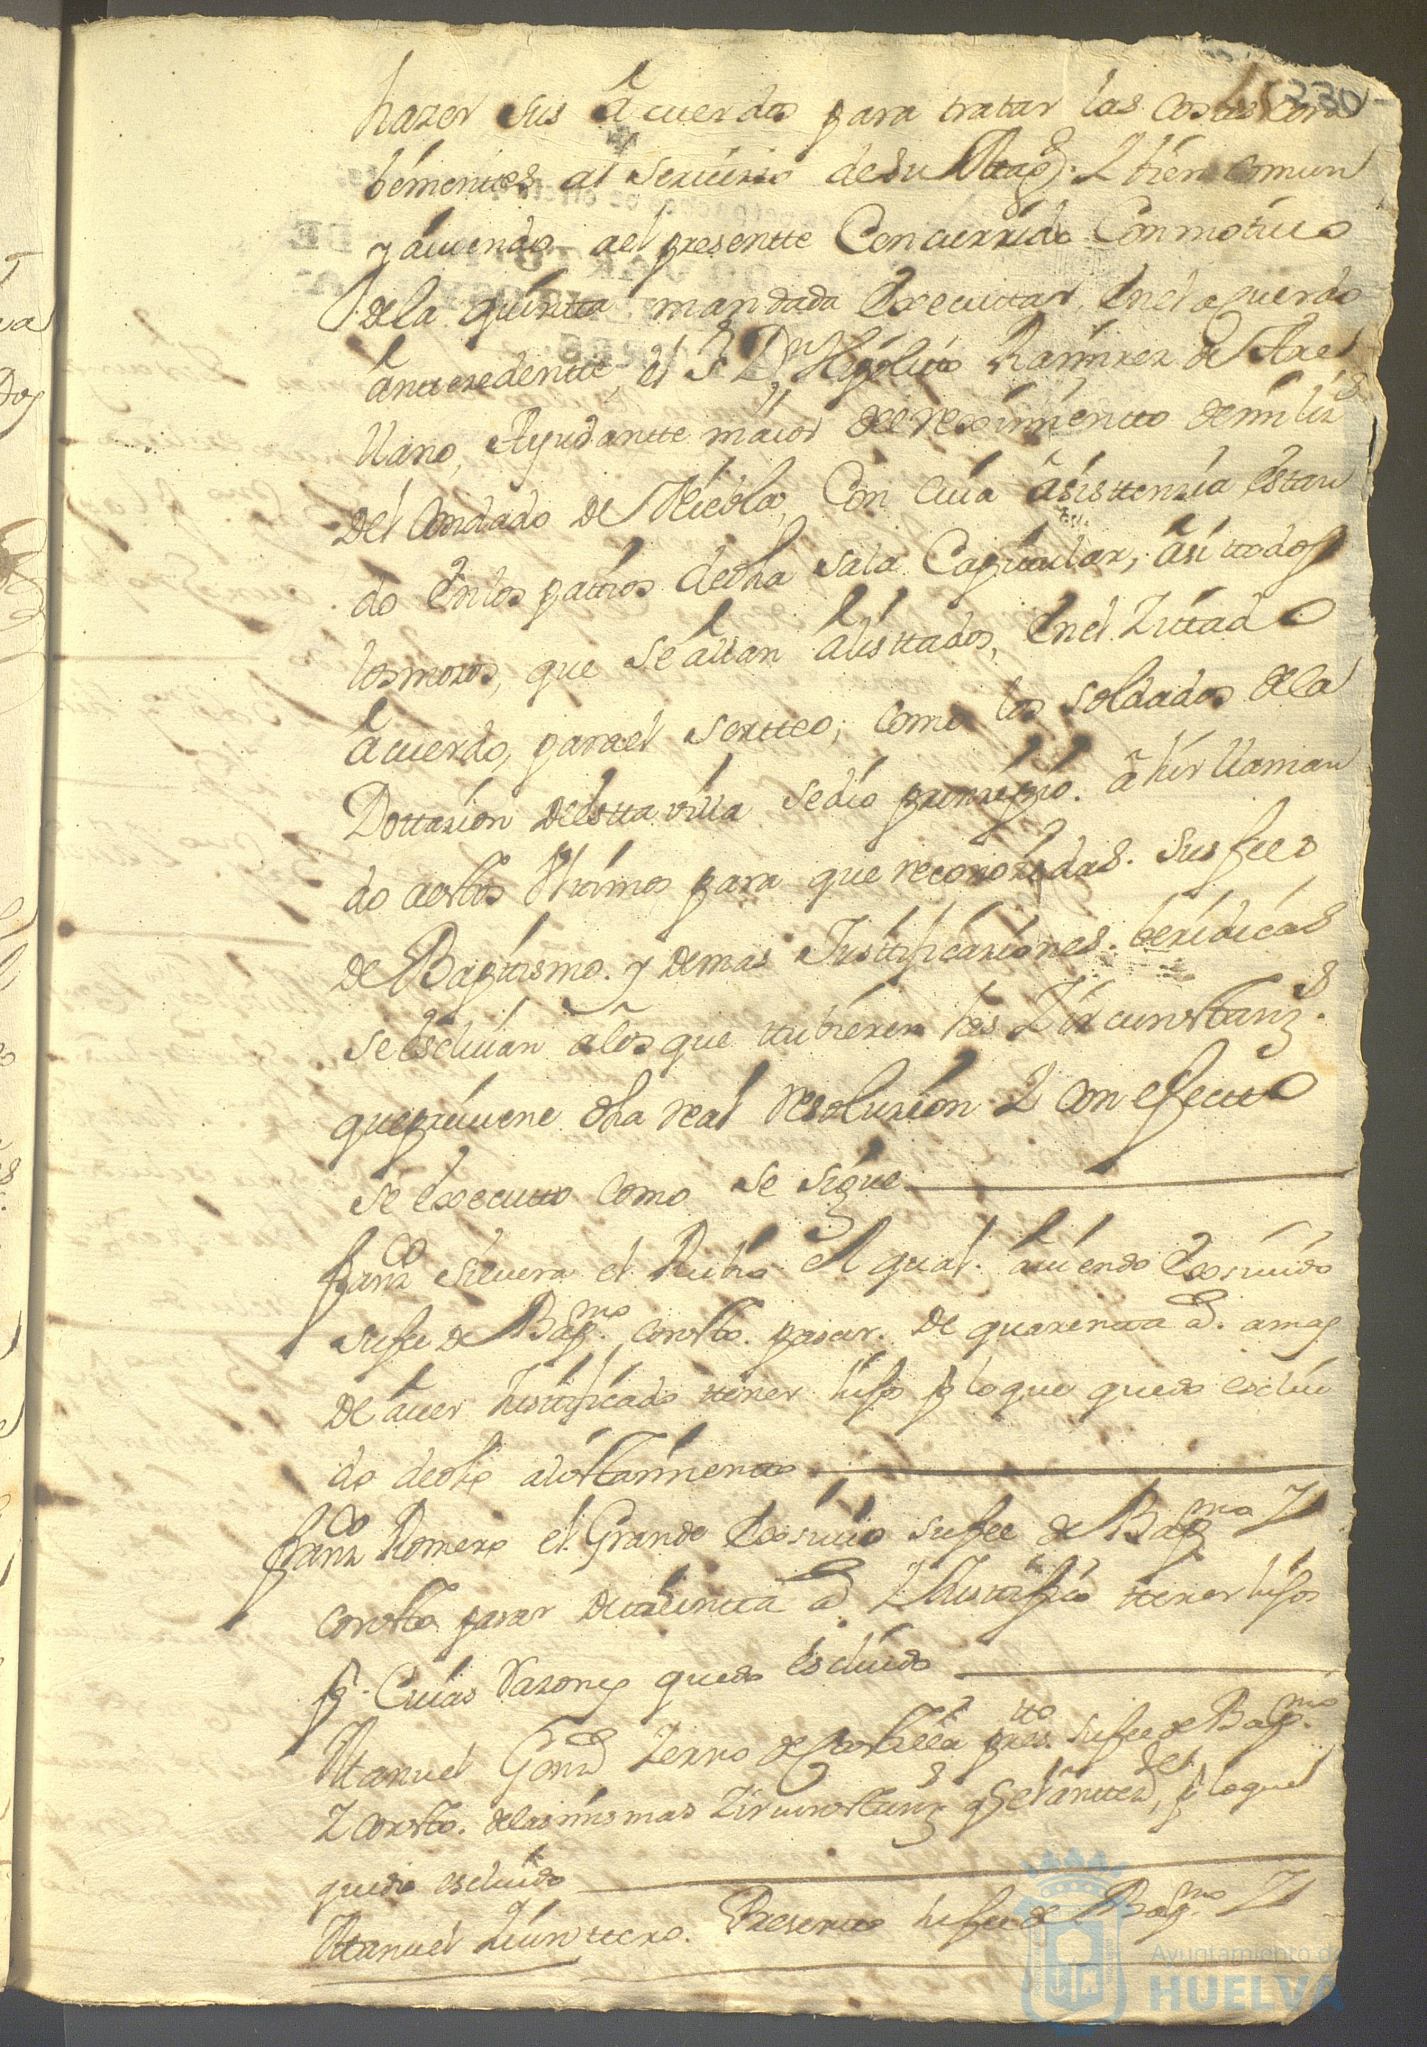 230
hazer sus acuerdos para tratar las cosas con
benientes al servicio de su Magd. Y bien comun
y aviendo al presentte Concurrido Con motivo
de la quintta mandada Executtar, En el aquerdo
anttezedentte, el Sr. Dn. Hipolito Ramirez de Arel
llano, Ayudantte maior del reximientto de miliz.s
del Condado de Niebla, Con cuia asisttenzia estan
do En los pattios de dha sala Capitular, asi ttodos
los mozos, que se allan alisttados, En el Zittado
acuerdo, para el sortteo; como los soldados de la
Dottazion de estta villa se dio prinzipio. a hir llaman
do a estos Ytimos para que reconozidas. sus fees
de Baptismo. y demas Justtificaziones. beridicas
se escluian a los que ttubieren las Zircunstanz.s
que previene dha real resoluzion Y con efectto
se executto como se sigue
Franco Silvera el Rubio el qual. aviendo Exsivido
su fee de Bapmo. consto. pasar. de quarentta as. a mas
de aver Justtificado ttener hijo p lo que quedo esclui
do de dho alistamientto
Franco Romero el Grande Exsivio su fee de Bapmo Y
consto pasar de treintta as Y Justtifico ttener hijos
p. Cuias Razones quedo Escluido
Manuel Gonz Zerno de Costilla presto. su fee de Bapmo.
Y consto. de las mismas Zircunstanz.s q el anttezedte, p lo que
quedo escluido
Manuel Quinttero. Presentto su fee de Bapmo. Y
Ayuntamiento de
HUELVA